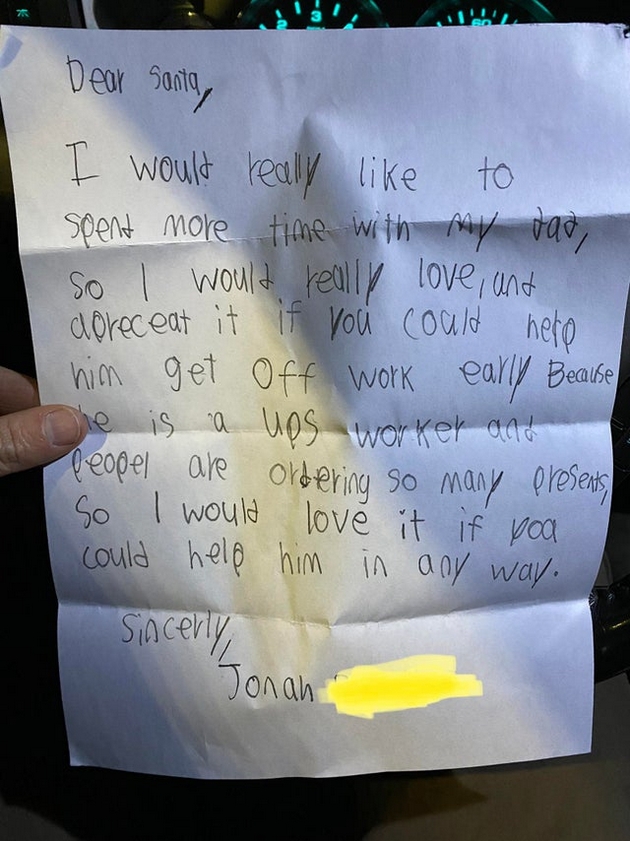 Dear Santa,
I would really like to
spend more time with my dad,
So I would really love, and
apreceat it if you could help
him get off work early Because
he is a ups worker and
peopel are ordering so many presents,
So I would love it if you
could help him in any way.
Sincerly,
Jonah
2 3
60